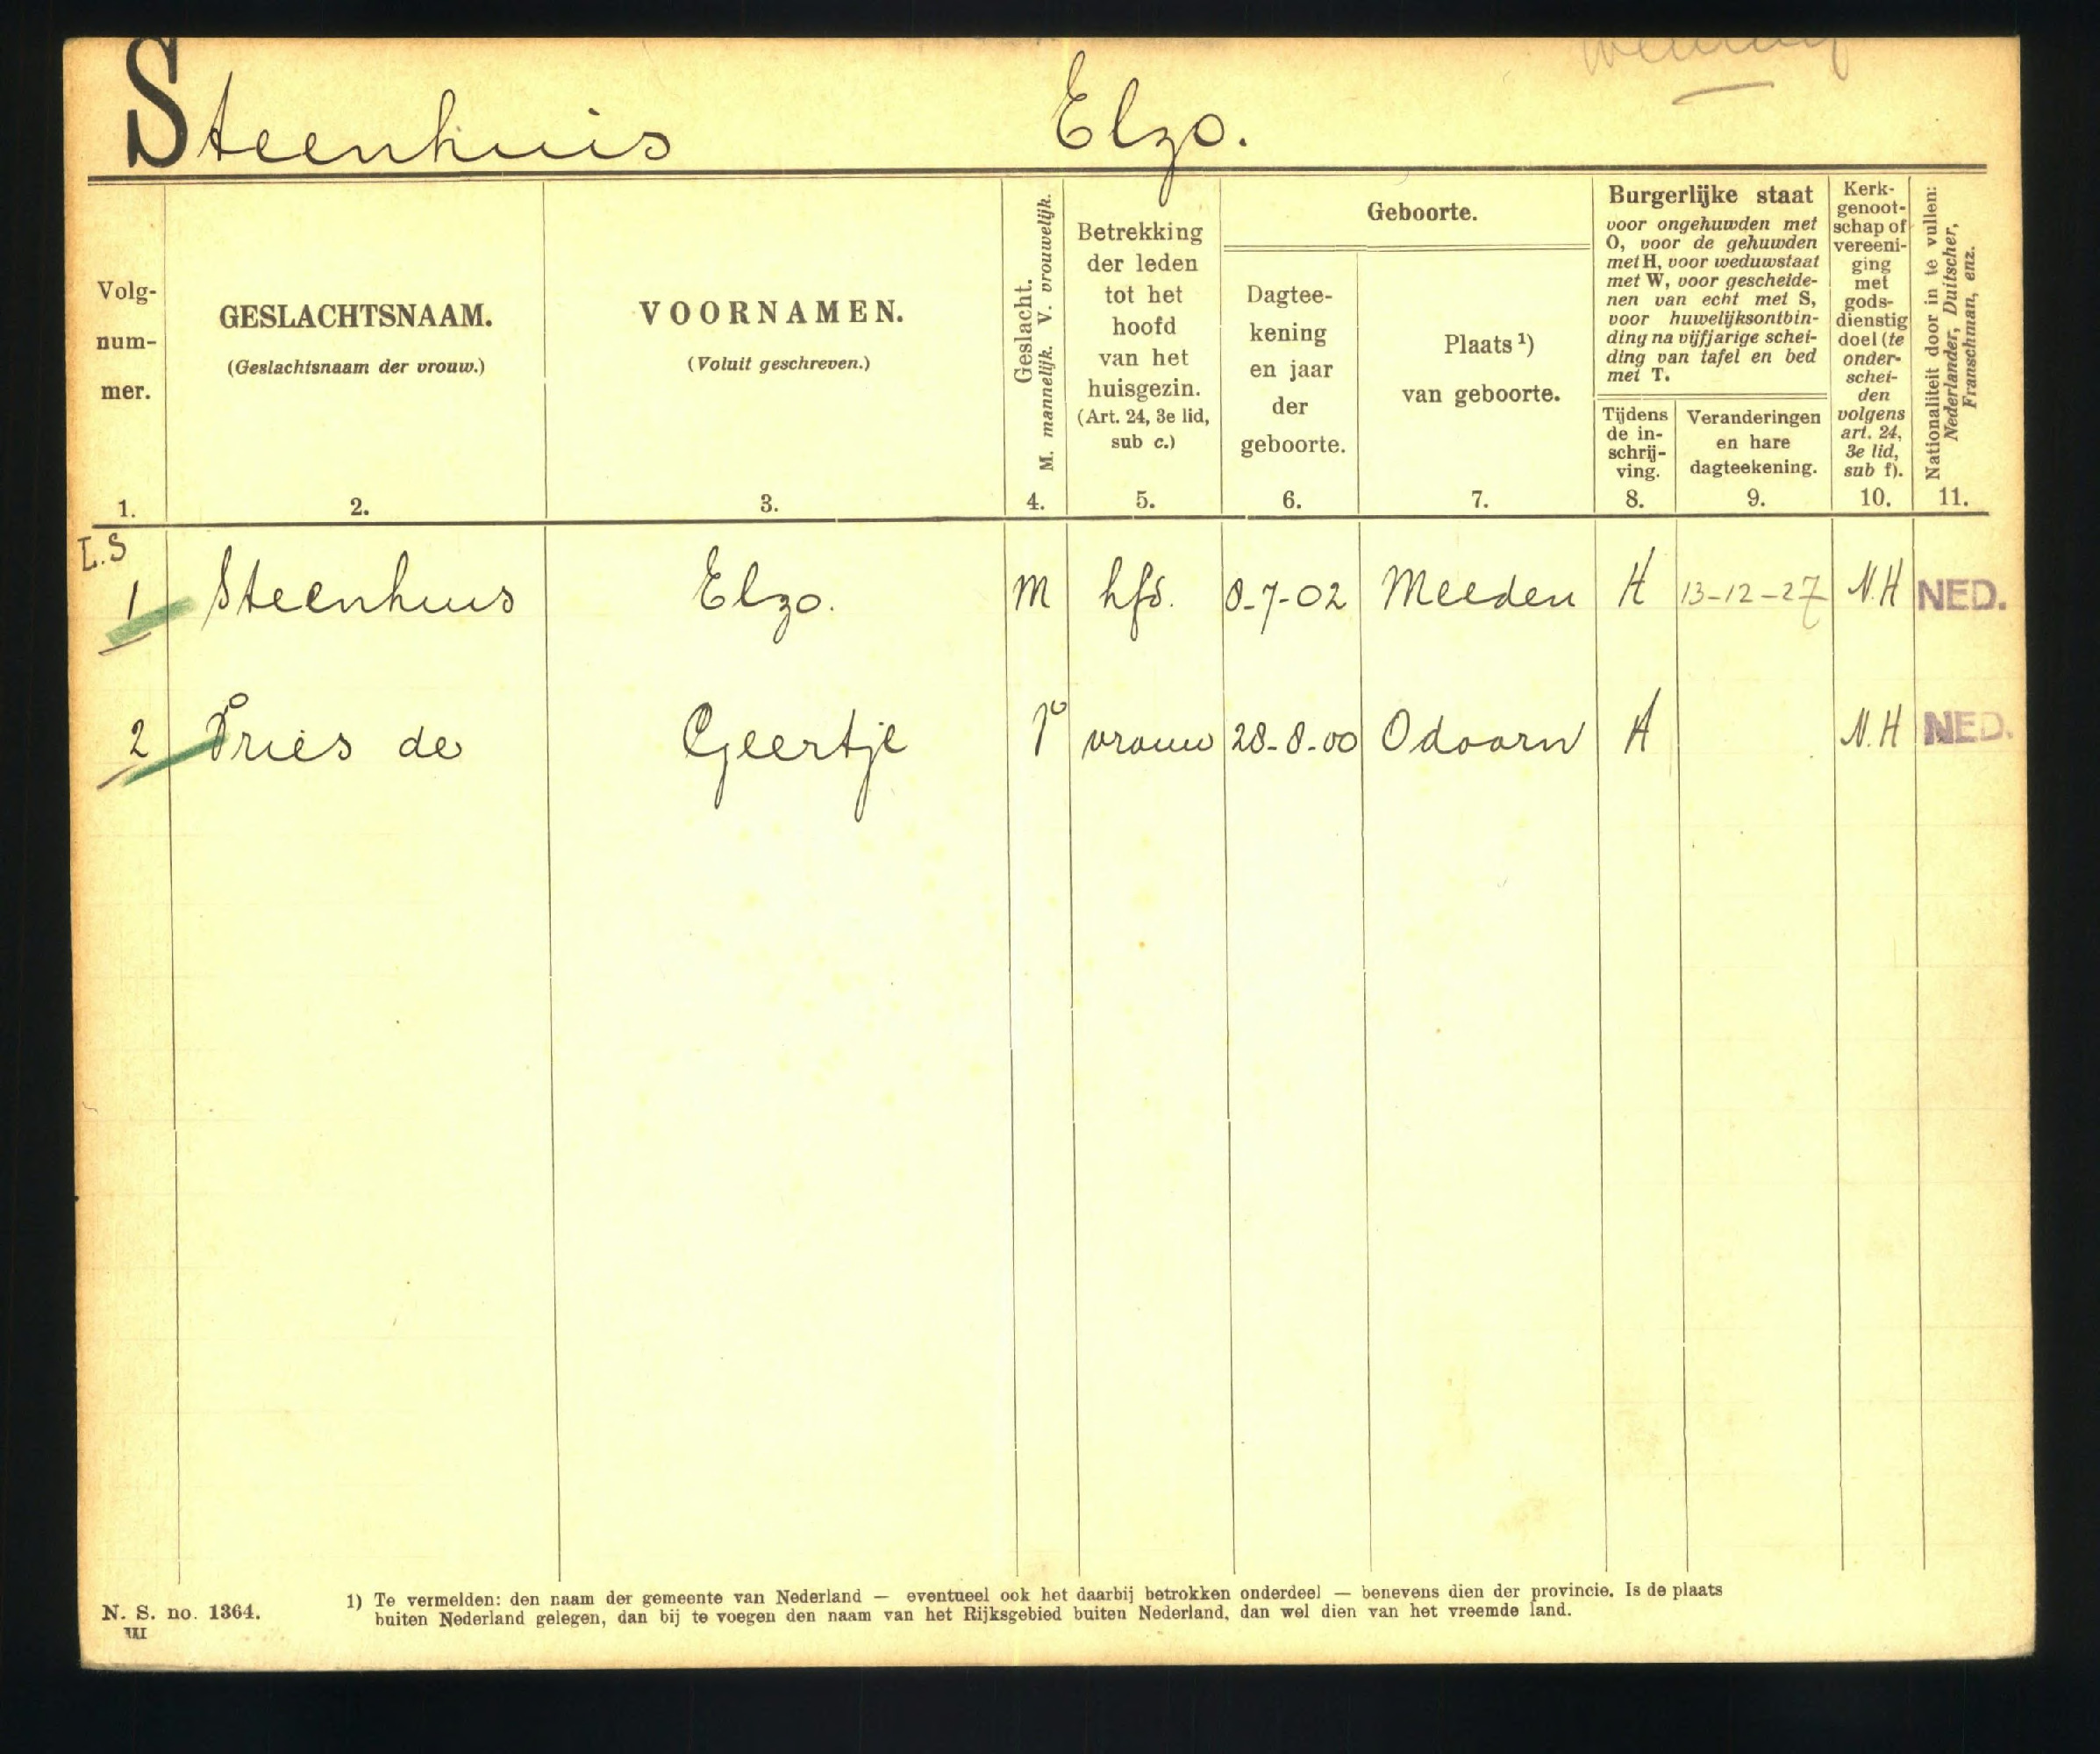 Steenhuis Elzo.
Volg-
num-
mer.
1.
GESLACHTSNAAM.
(Geslachtsnaam der vrouw.)
2.
VOORNAMEN.
(Voluit geschreven.)
3.
Geslacht.
M. mannelijk. V. vrouwelijk.
4.
Betrekking
der leden
tot het
hoofd
van het
huisgezin.
(Art. 24, 3e lid,
sub c.)
5.
Geboorte.
Dagtee-
kening
en jaar
der
geboorte.
6.
Plaats 1)
van geboorte.
7.
Burgerlijke staat
voor ongehuwden met
O, voor de gehuwden
met H, voor weduwstaat
met W, voor gescheide-
nen van echt met S,
voor huwelijksontbin-
ding na vijfjarige schei-
ding van tafel en bed
met T.
Tijdens
de in-
schrij-
ving.
8.
Veranderingen
en hare
dagteekening.
9.
Kerk-
genoot-
schap of
vereeni-
ging
met
gods-
dienstig
doel (te
onder-
schei-
den
volgens
art. 24,
3e lid,
sub f).
10.
Nationaliteit door in te vullen:
Nederlander, Duitscher,
Franschman, enz.
11.
L.S
1 Steenhuis Elzo. M hfd. 8-7-02 Meeden H 13-12-27 N.H NED.
2 Vries de Geertje V vrouw 28-8-00 Odoorn H N.H NED.
N. S. no. 1364.
III
1) Te vermelden: den naam der gemeente van Nederland — eventueel ook het daarbij betrokken onderdeel — benevens dien der provincie. Is de plaats
buiten Nederland gelegen, dan bij te voegen den naam van het Rijksgebied buiten Nederland, dan wel dien van het vreemde land.